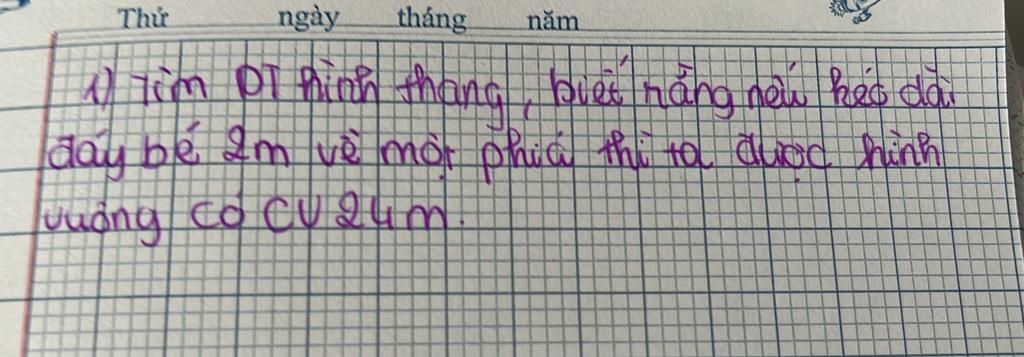 Thứ ngày tháng năm
1) Tìm DT hình thang, biết rằng nếu kéo dài
đáy bé 2m về một phía thì ta được hình
vuông có CV 24m.